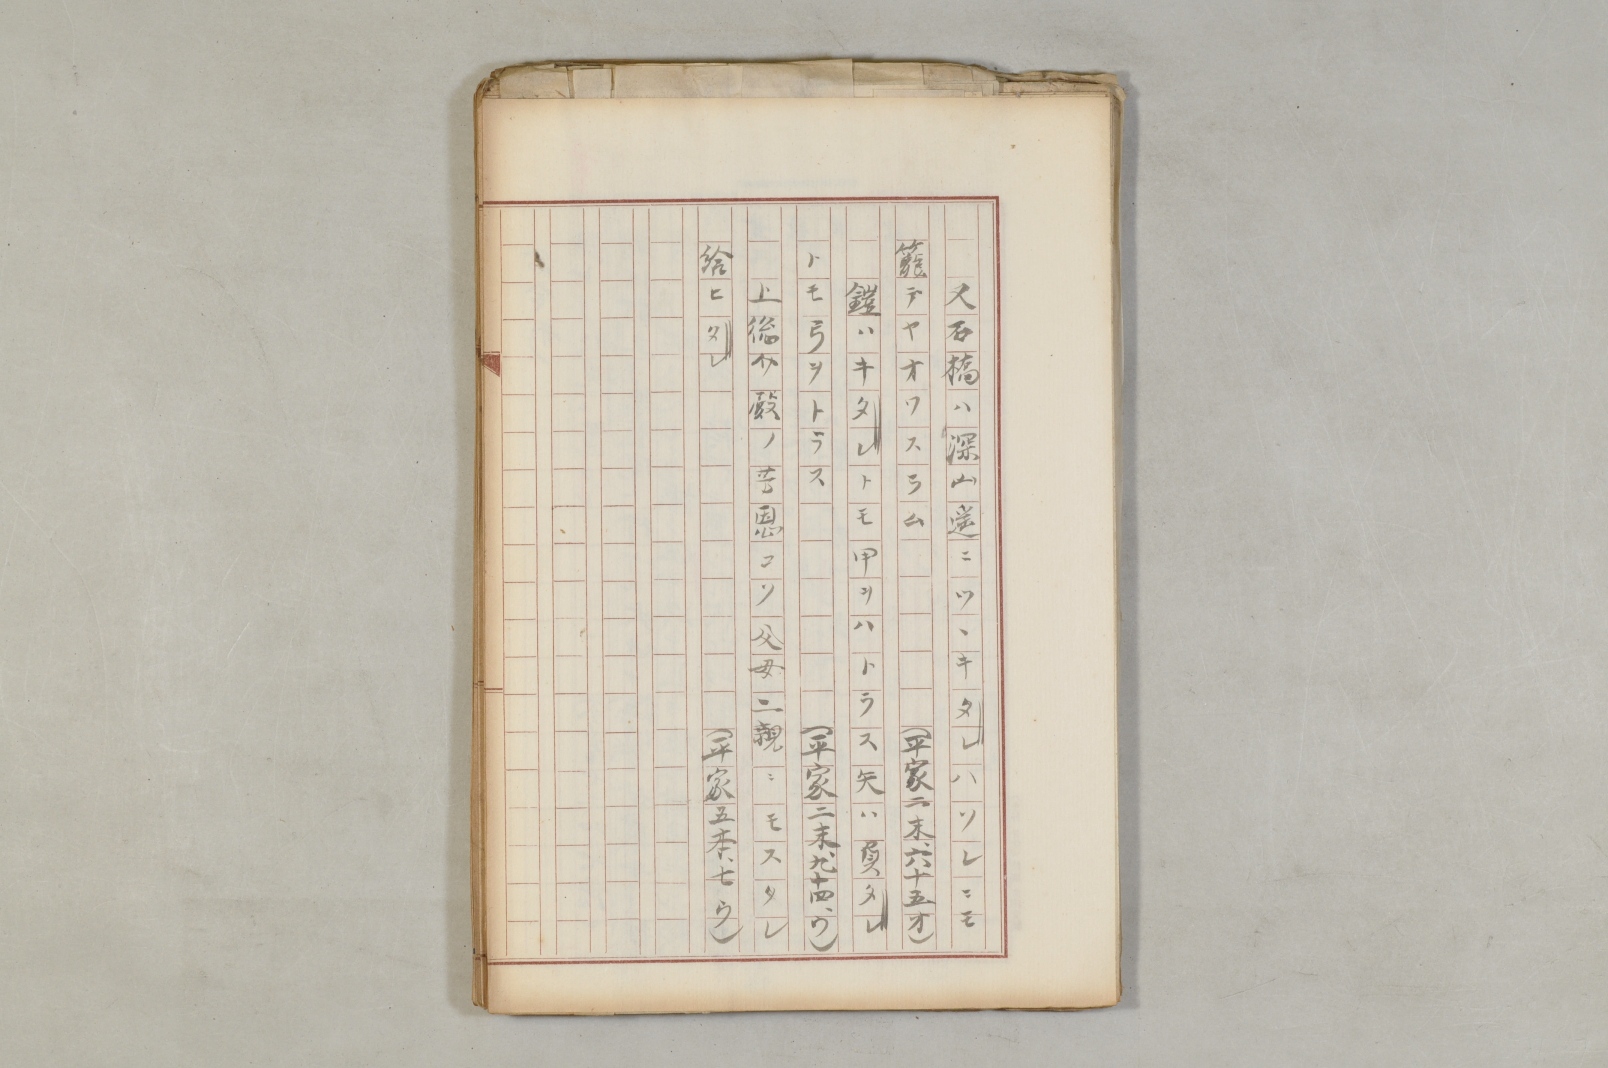 又石橋ハ深山遥ニツヽキタレハソレニモ
籠テヤオワスラム（平家二末、六十五オ）
鎧ハキタレトモ甲ヲハトラス矢ハ負タレ
トモ弓ヲトラス（平家二末、九十四、ウ）
上総介殿ノ芳恩コソ父母二親ニモスタレ
給ヒタレ（平家五本、七ウ）